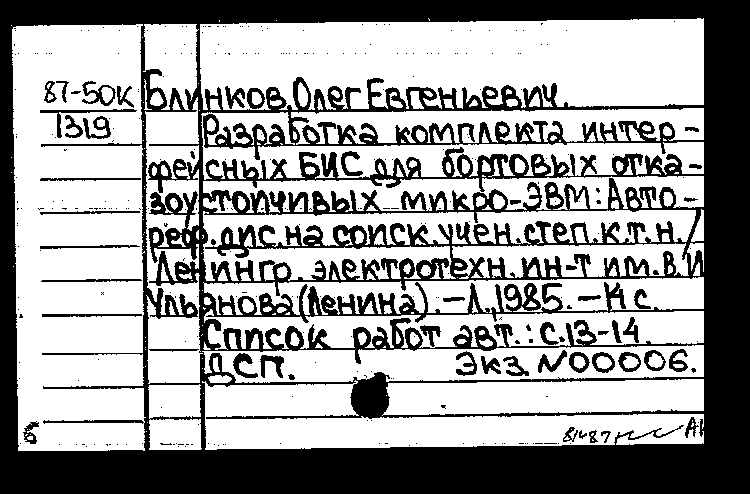 87-50К Блинков, Олег Евгеньевич.
1319 Разработка комплекта интер-
фейсных БИС для бортовых отка-
зоустойчивых микро-ЭВМ: Авто-
реф. дис. на соиск. учен. степ. к. т. н. /
Ленингр. электротехн. ин-т им. В. И
Ульянова (Ленина). – Л., 1985. – 14 с.
Список работ авт.: с. 13-14.
ДСП. Экз. N00006.
б